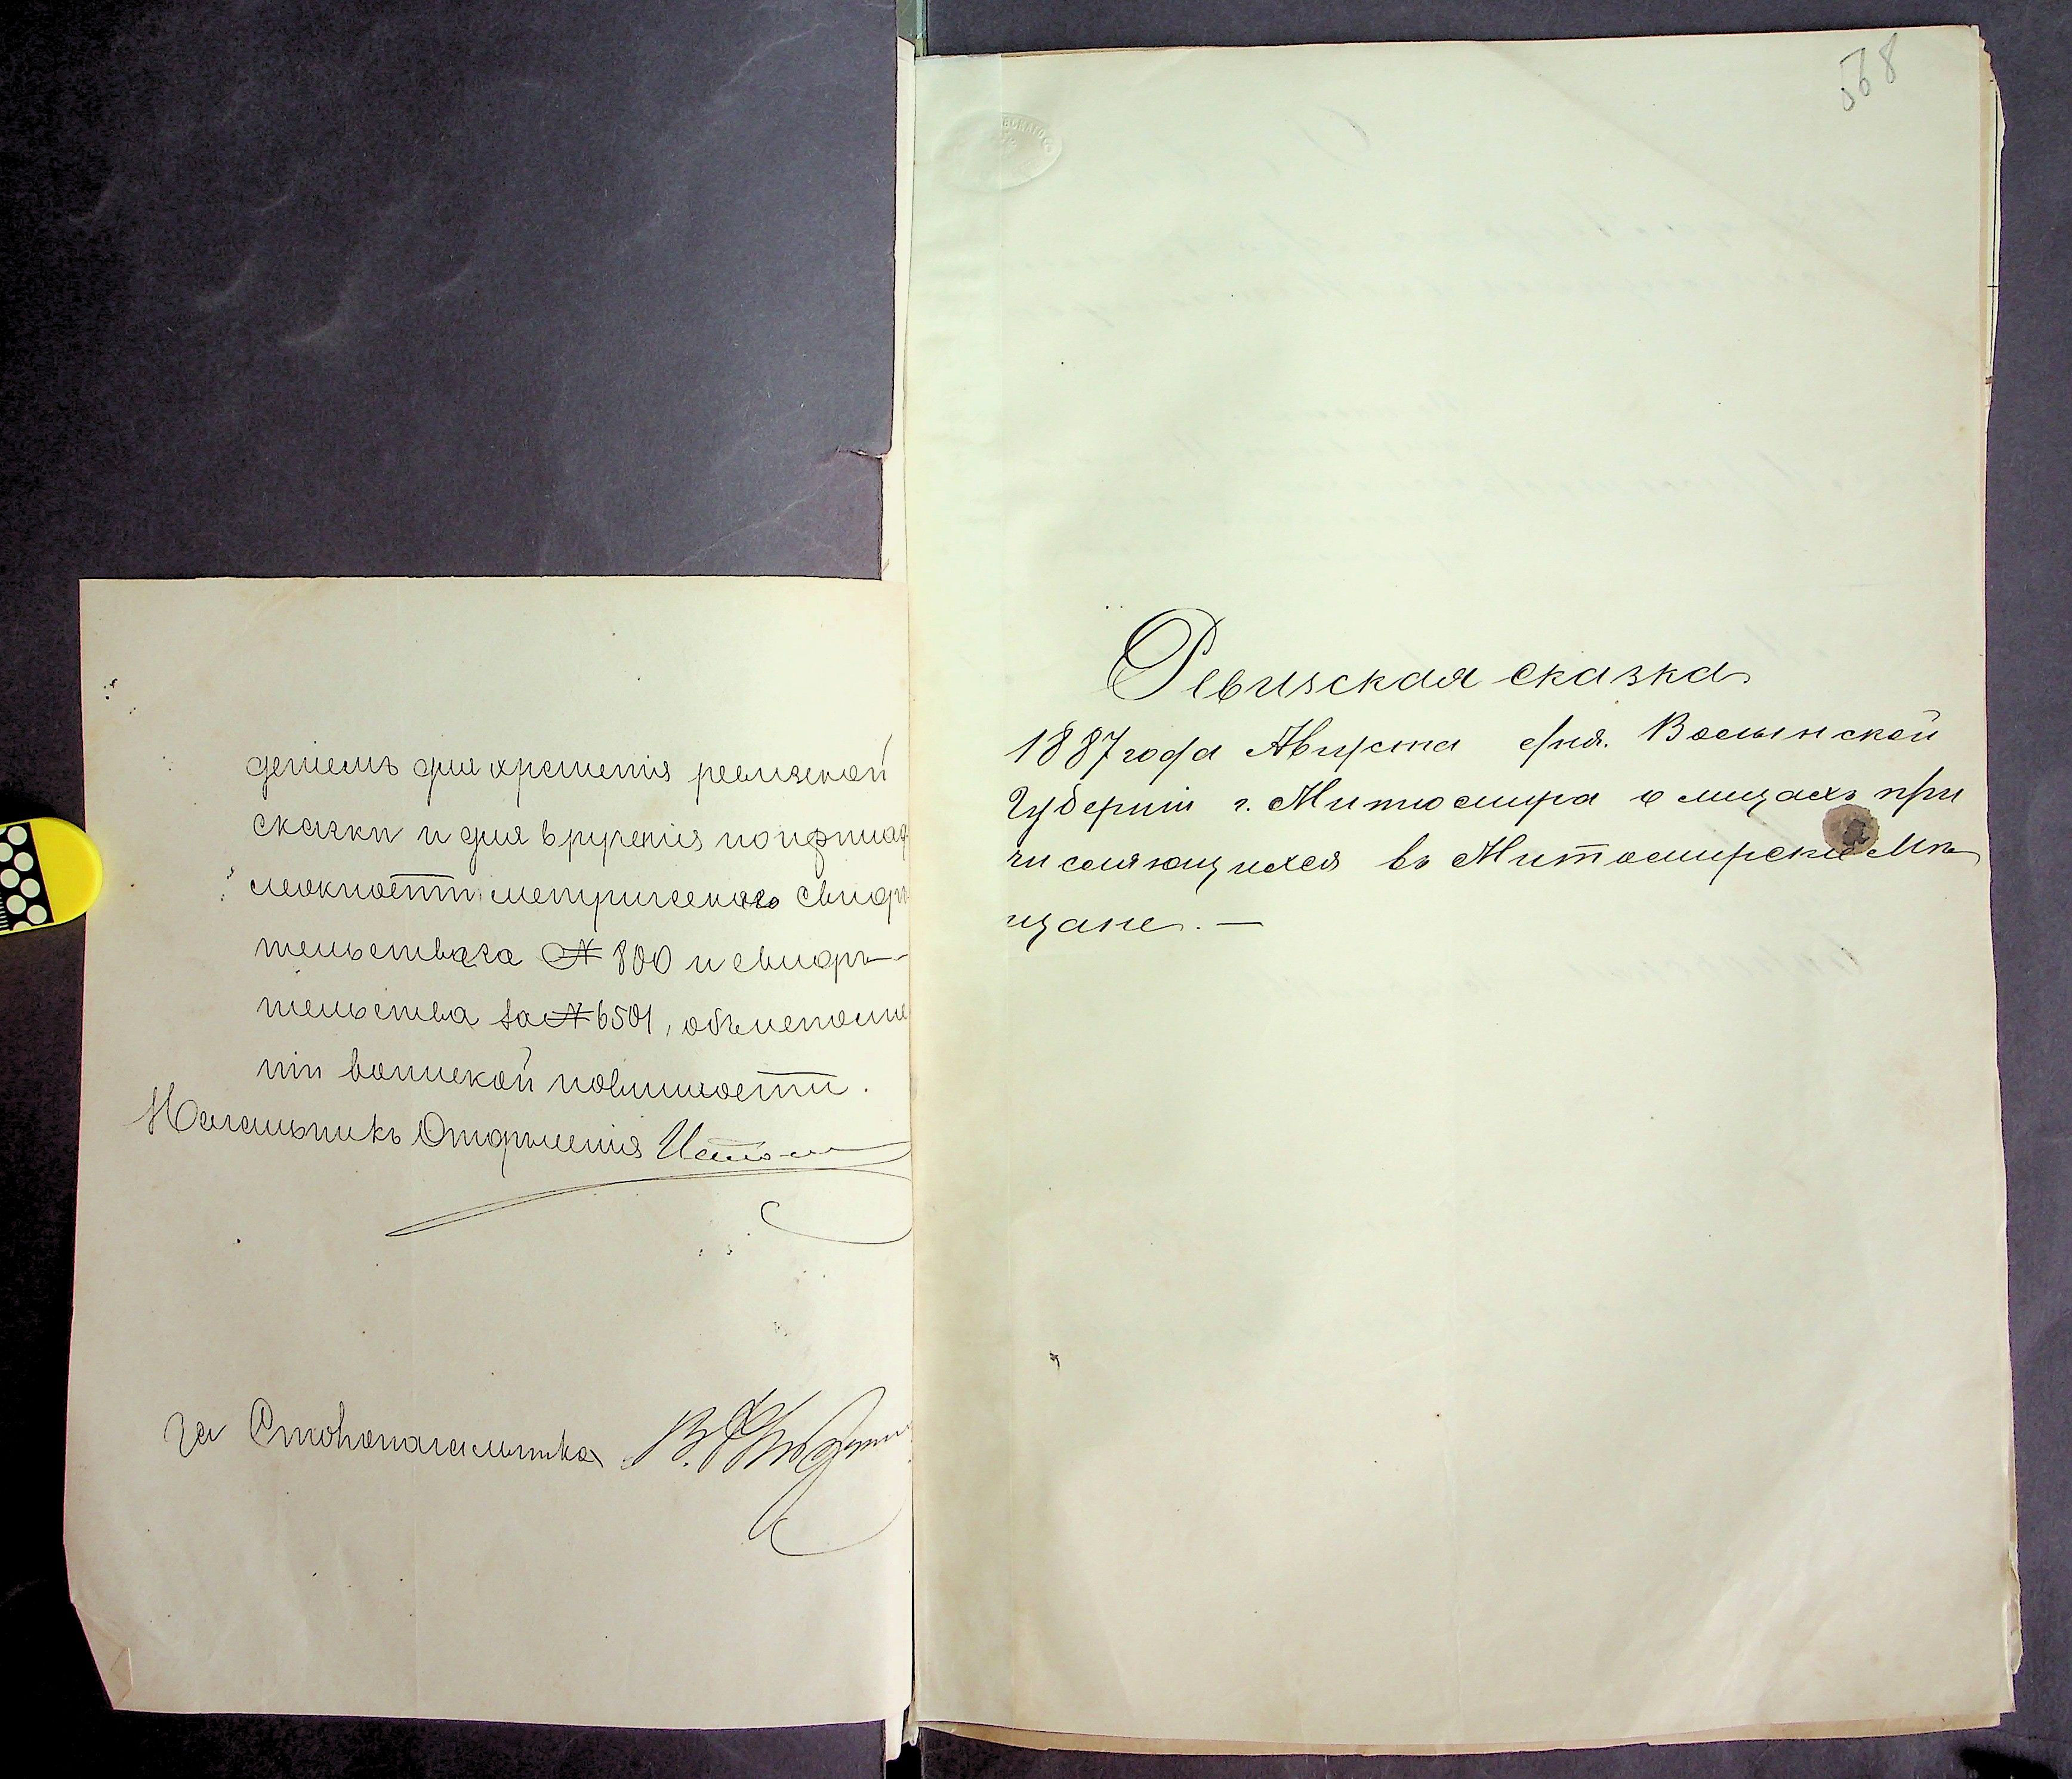 деніемъ для храненія ревизской
сказки и для врученія по принад
лежности метрическаго свидѣ
тельства за № 800 и свидѣ-
тельства за № 6501, объ исполне
ніи воинской повинности.
Начальникъ Отдѣленія
За Столоначальника
568
Ревизская сказка
1887 года Августа дня. Волынской
Губерніи г. Житомира о лицахъ при
числяющихся въ Житомирскіе Мѣ
щане. —